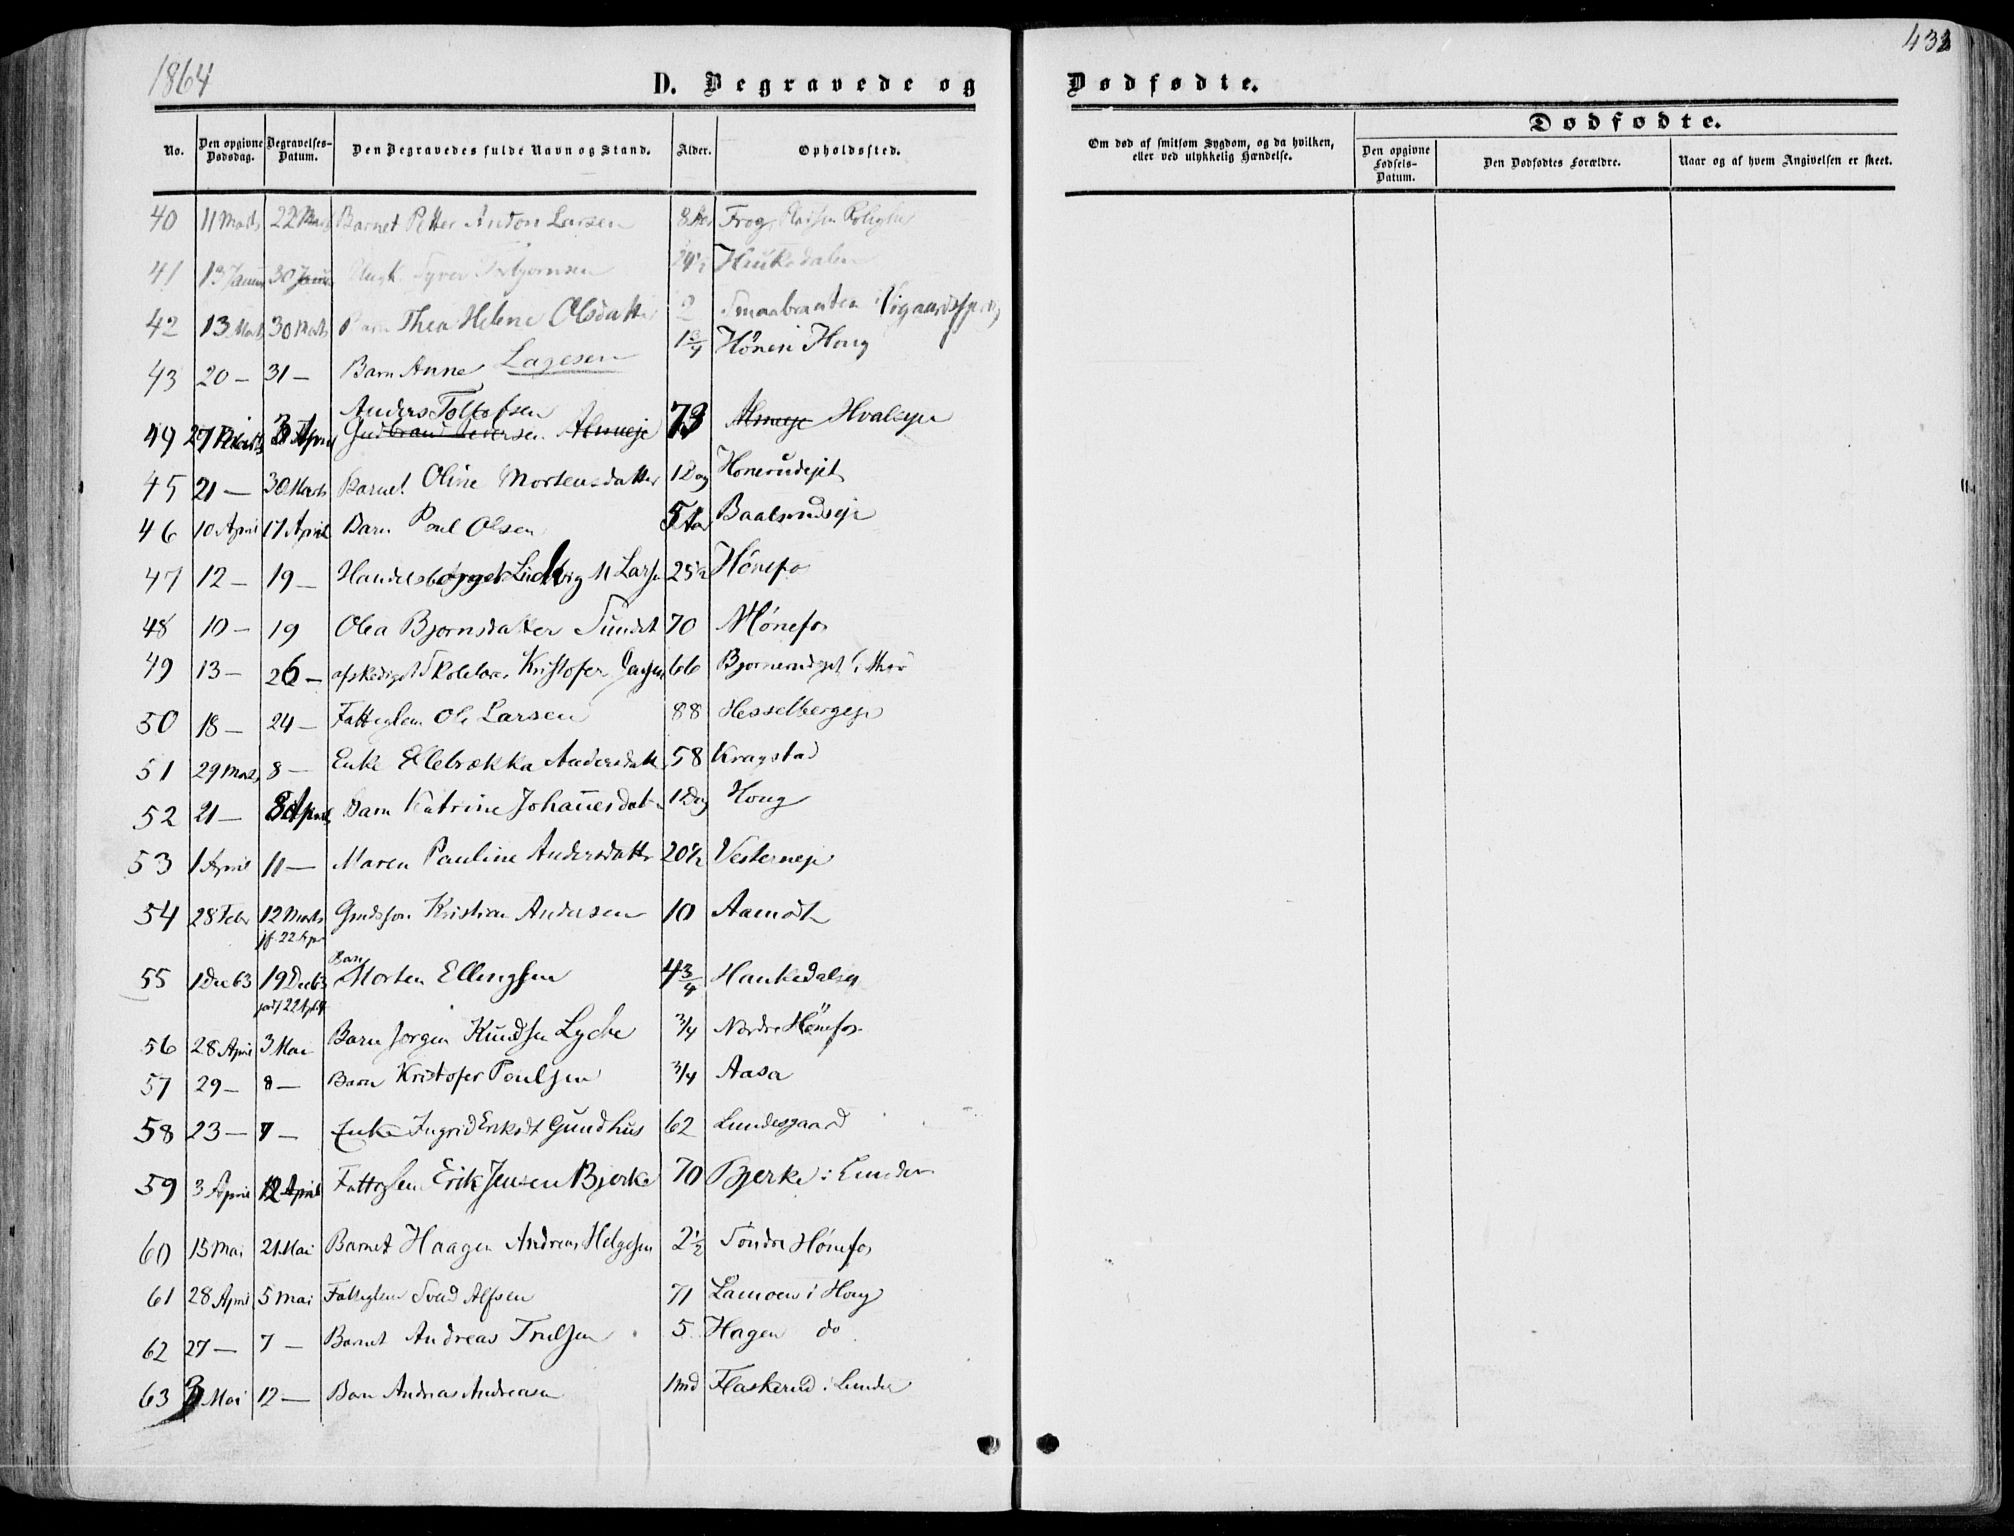 1864
433
D. Begravede og Dødfødte.
No. Den opgivne Dødsdag. Begravelses-Datum. Den Begravedes fulde Navn og Stand. Alder. Opholdssted.
Om død af smitsom Sygdom, og da hvilken, eller ved ulykkelig Hændelse.
Dødfødte.
Den opgivne Fødsels-Datum. Den Dødfødtes Forældre. Naar og af hvem Angivelsen er skeet.
40 11 Marts 22 Marts Barnet Petter Anton Larsen 8 Frog
41 13 Januar 30 Torbjørnsen
42 13 Marts 30 Marts Barn Thea Helene Olsdatter 2 Smaabraaten
43 20 – 31 – Barn Anne Lagesen 1 3/4 Hønen i Houg
Anders Tollofsen
49 27 3 April Gudbrand Iversen Almueje 73 Almueje Hvalseje
45 21 – 30 Marts Barnet Oline Mortensdatter 1 Dag Honerudejet
46 10 April 17 April Barn Poul Olsen 5 Aar
47 12 – 19 – Ludvig M Larse 25 1/2 Hønefos
48 10 – 19 Olea Bjørnsdatter Sundet 70 Hønefos
49 13 – 26 – afskediget Skolelær Kristofer 66
50 18 – 24 – Fattiglem Ole Larsen 88 Hesselbergeje
51 29 Marts 8 – Enke Ellebrækka Andersdatt 58 Kragstad
52 21 – 8 April Barn Katrine Johannesdat 1 Dag Houg
53 1 April 11 – Maren Pauline Andersdatter 20 1/2 Vesterneje
54 28 Febr 12 Marts Gaudsson Kristian Andersen 10 Aamodt
jf 22 Apr
Barn
55 1 Dec 63 19 Dec 63 Morten Ellingsen 4 3/4
jordf 22 April 64
56 28 April 3 Mai Barn Jørgen Knudsen Lycke 3/4 Nordre Hønefos
57 29 – 8 – Barn Kristofer Poulsen 3/4 Aasa
58 23 – 7 – Enke Ingrid Eriksdt Gundhus 62 Lundesgaard
59 3 April 12 April Fattiglem Erik Jensen Bjerke 70 Bjerke i Lunder
60 15 Mai 21 Mai Barnet Haagen Andreas Helgesen 2 1/2 Søndre Hønefos
61 28 April 5 Mai Fattiglem Alfsen 71 Lamoen i Houg
62 27 – 7 – Barnet Andreas Trulsen 5 Hagen do
63 3 Mai 12 – Barn Andreas Andreasen 1 Md Flaskerud i Lunder